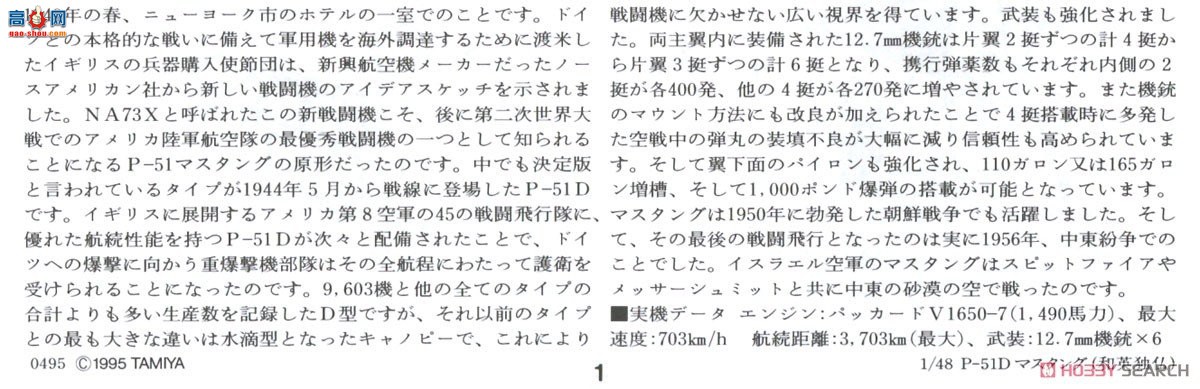 年の春、ニューヨーク市のホテルの一室でのことです。ドイ
ツとの本格的な戦いに備えて軍用機を海外調達するために渡米し
たイギリスの兵器購入使節団は、新興航空機メーカーだったノー
スアメリカン社から新しい戦闘機のアイデアスケッチを示されま
した。NA73Xと呼ばれたこの新戦闘機こそ、後に第二次世界大
戦でのアメリカ陸軍航空隊の最優秀戦闘機の一つとして知られる
ことになるP-51マスタングの原形だったのです。中でも決定版
と言われているタイプが1944年5月から戦線に登場したP-51D
です。イギリスに展開するアメリカ第8空軍の45の戦闘飛行隊に、
優れた航続性能を持つP-51Dが次々と配備されたことで、ドイ
ツへの爆撃に向かう重爆撃機部隊はその全航程にわたって護衛を
受けられることになったのです。9,603機と他の全てのタイプの
合計よりも多い生産数を記録したD型ですが、それ以前のタイプ
との最も大きな違いは水滴型となったキャノピーで、これにより
戦闘機に欠かせない広い視界を得ています。武装も強化されまし
た。両主翼内に装備された12.7mm機銃は片翼2挺ずつの計4挺か
ら片翼3挺ずつの計6挺となり、携行弾薬数もそれぞれ内側の2
挺が各400発、他の4挺が各270発に増やされています。また機銃
のマウント方法にも改良が加えられたことで4挺搭載時に多発し
た空戦中の弾丸の装填不良が大幅に減り信頼性も高められていま
す。そして翼下面のパイロンも強化され、110ガロン又は165ガロ
ン増槽、そして1,000ポンド爆弾の搭載が可能となっています。
マスタングは1950年に勃発した朝鮮戦争でも活躍しました。そし
て、その最後の戦闘飛行となったのは実に1956年、中東紛争での
ことでした。イスラエル空軍のマスタングはスピットファイアや
メッサーシュミットと共に中東の砂漠の空で戦ったのです。
■実機データ エンジン:パッカードV1650-7(1,490馬力)、最大
速度:703km/h 航続距離:3,703km(最大)、武装:12.7mm機銃×6
0495 ©1995 TAMIYA
1
1/48 P-51Dマスタング(和英独仏)
高高网
gao-shou.com
HOBBY SEARCH